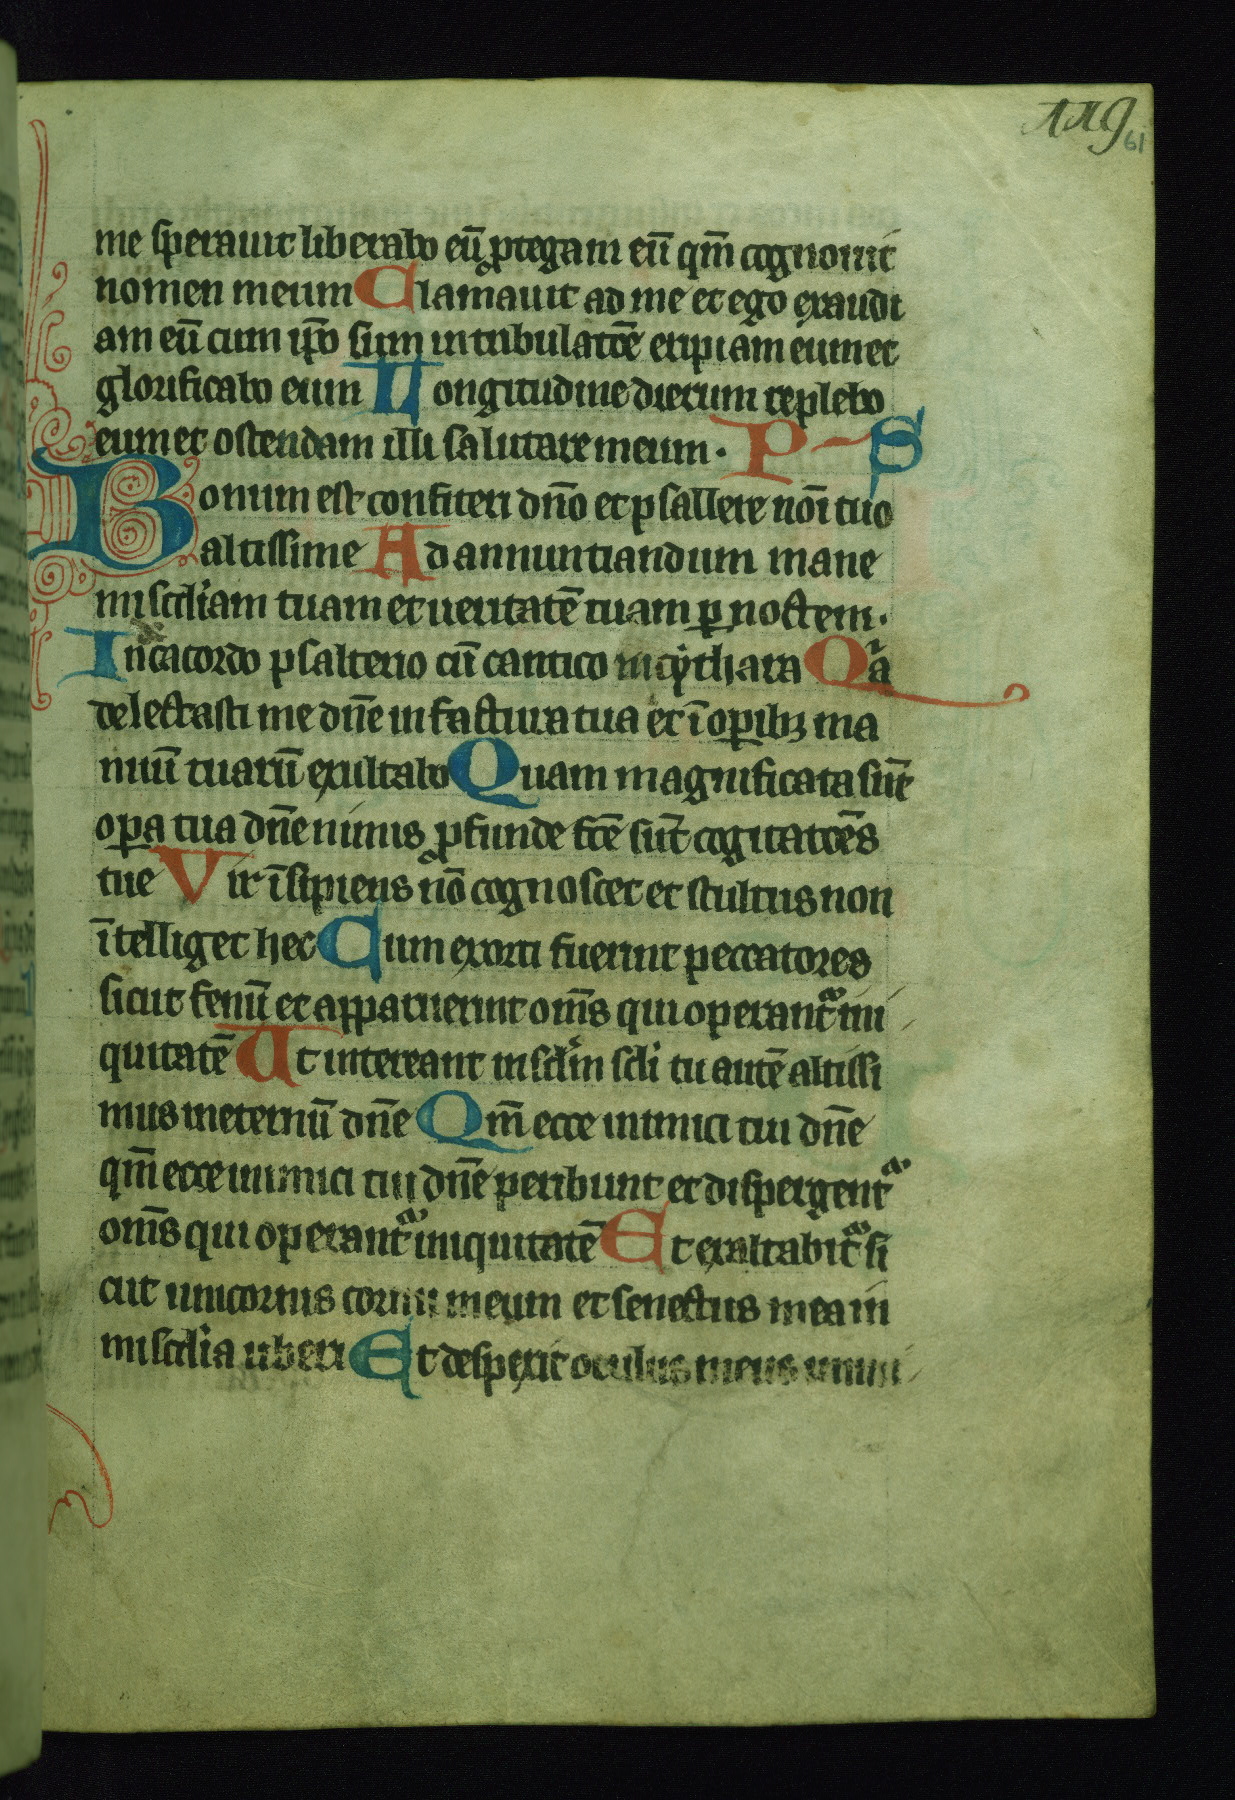 ΛΛ9
61
me sperauit liberabo eū ꝓtegam eū qm̄ cognouit
nomen meum Clamauit ad me et ego exaudi
am eū cum ip̄o sum in tribulatōe eripiam eum et
glorificabo eum Longitudine dierum replebo
eum et ostendam illi salutare meum · P S
Bonum est confiteri dn̄o et psallere noī tuo
altissime Ad annuntiandum mane
misc̄diam tuam et ueritatē tuam ꝑ noctem ·
In decacordo psalterio cū cantico in cythara Qͥa
delectasti me dn̄e in factura tua et ī oꝑibꝫ ma
nuū tuarū exultabo Quam magnificata sūt
oꝑa tua dn̄e nimis ꝓfunde fc̄e sūt cogitatōes
tue Vir īsipiens nō cognoscet et stultus non
ītelliget hec Cum exorti fuerint peccatores
sicut fenū et apparuerint om̄s qui operantᷓ ini
quitatē Ut intereant in sclm̄ scli tu autē altissi
mus in eternū dn̄e Qm̄ ecce inimici tui dn̄e
qm̄ ecce inimici tui dn̄e peribunt et dispergentᷓ
om̄s qui operantᷓ iniquitatē Et exaltabitᷓ si
cut unicornis cornu meum et senectus mea in
misc̄dia uberi Et despexit oculus meus inimi